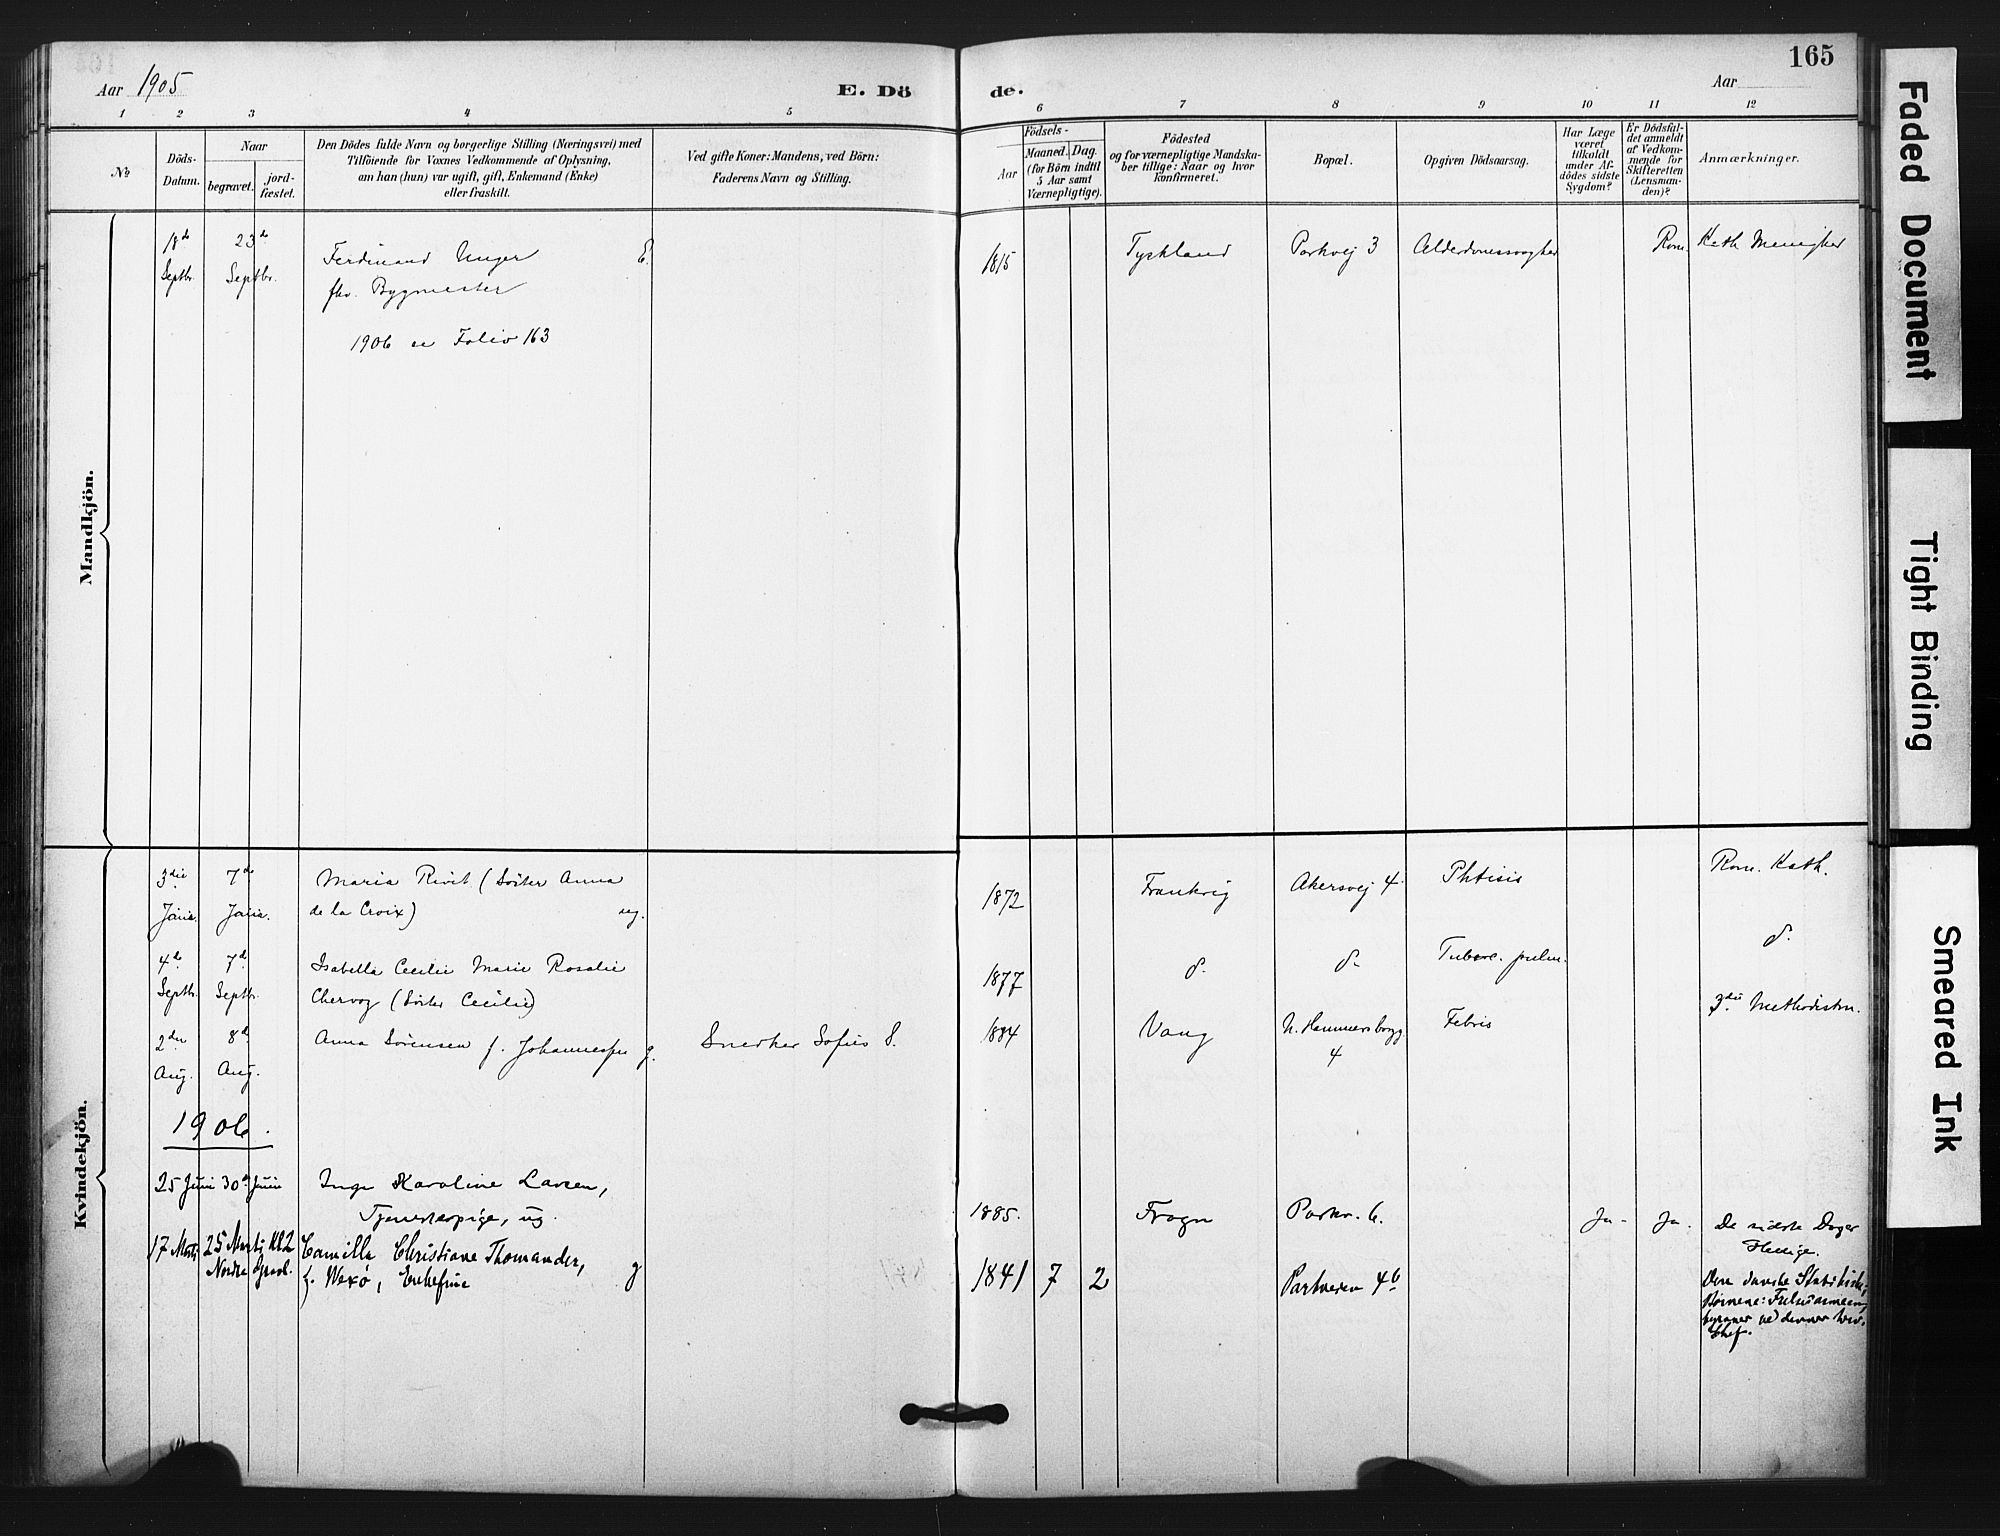 165
Aar 1905
E. Dö
de.
Aar
1 2 3 4 5 6 7 8 9 10 11 12
№
Döds-
Datum.
Naar
begravet.
jord-
fæstet.
Den Dödes fulde Navn og borgerlige Stilling (Næringsvei) med
Tilföiende for Voxnes Vedkommende af Oplysning,
om han (hun) var ugift, gift, Enkemand (Enke)
eller fraskilt.
Ved gifte Koner: Mandens, ved Börn:
Faderens Navn og Stilling.
Födsels-
Aar
Maaned. Dag.
(for Börn indtil
5 Aar samt
Værnepligtige).
Födested
og for værnepligtige Mandska-
ber tillige: Naar og hvor
konfirmeret.
Bopæl.
Opgiven Dödsaarsag.
Har Læge
været
tilkaldt
under Af-
dödes sidste
Sygdom?
Er Dödsfal-
det anmeldt
af Vedkom-
mende for
Skifteretten
(Lensman-
den)?
Anmærkninger.
Mandkjön.
18de Septbr. 23de Septbr. Ferdinand Unger E. 1815 Tyskland Parkvej 3 Rom. Kath Menigher
fhv. Bygmester
1906 se Folio 163
Kvindekjön.
3die 7de Maria Rivit (Söster Anna
Janr. Janr. de la Croix) ug. 1872 Frankrig Akersvej 4 Phtisis Rom. Kath.
4de 7de Isabella Cecilie Marie Rosalie
Septbr. Septbr. (Söster Cecilie) 1877 d. d. Tuberc. pulm. d.
2den 8de Anna Sörensen f. g. Snedker Sofus S. 1884 Vang N. Hammersborgg. Febris Methodistm.
Aug. Aug. 4
1906.
25 Juni 30te Juni Inga Karoline Larsen,
Tjenestepige, ug. 1885. Frogn Parkv. 6. Ja - Ja. De sidste Dages
Hellige.
17 Marts 25 Marts Kl 2 Camilla Christiane Thomander,
Nordre Gravl. f. Wexø, Enkefrue g 1841 7 2 Parkveien 4b Den danske
Chef.
Faded Document
Tight Binding
Smeared Ink